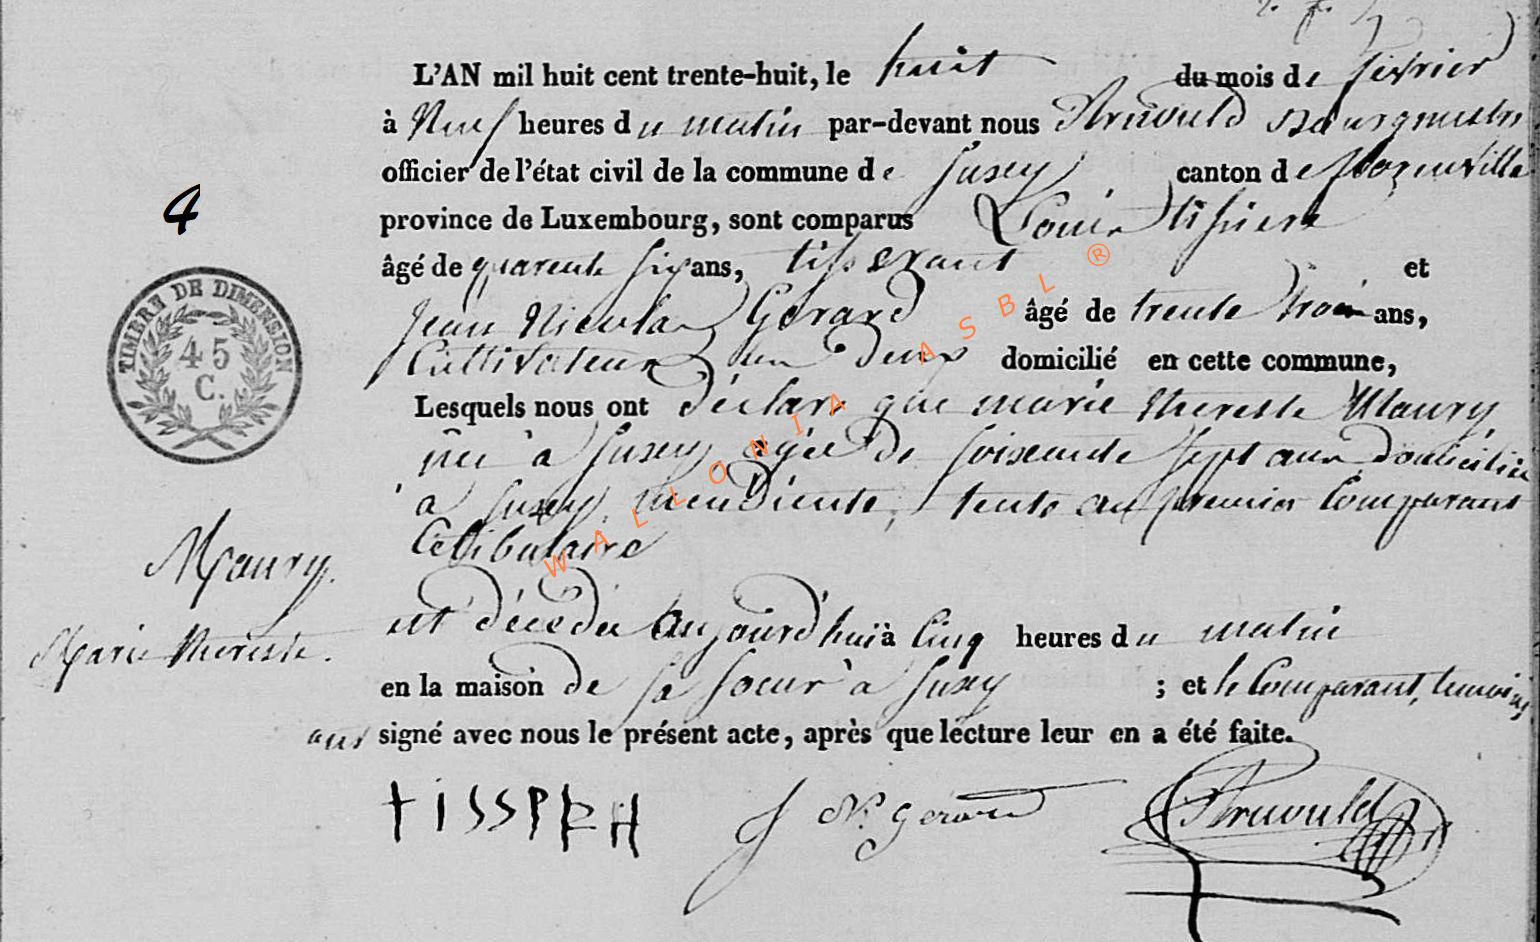 L'AN mil huit cent trente-huit, le huit du mois de fevrier
à Neuf heures du matin par-devant nous Arnould Bourgmestre
officier de l'état civil de la commune de Suxey canton de florenville
province de Luxembourg, sont comparus Louis tissiere
4
âgé de quarente six ans, tisserant et
Jean Nicolas Gerard âgé de trente trois ans,
Cultivateur les deux domicilié en cette commune,
Lesquels nous ont déclaré que marie therese Maury
née à Suxey agée de soixente sept ans domiciliée
à Suxey, mendiente, tente au premier Comparant
Celibutaire
Maury
Marie therese.
est décédée aujourd'hui à Cinq heures du matin
en la maison de sa soeur à Suxey ; et le Comparant, temoins
ont signé avec nous le présent acte, après que lecture leur en a été faite.
J N. Gerard Arnould
TIMBRE DE DIMENSION
45
C.
WALLONIA ASBL ®